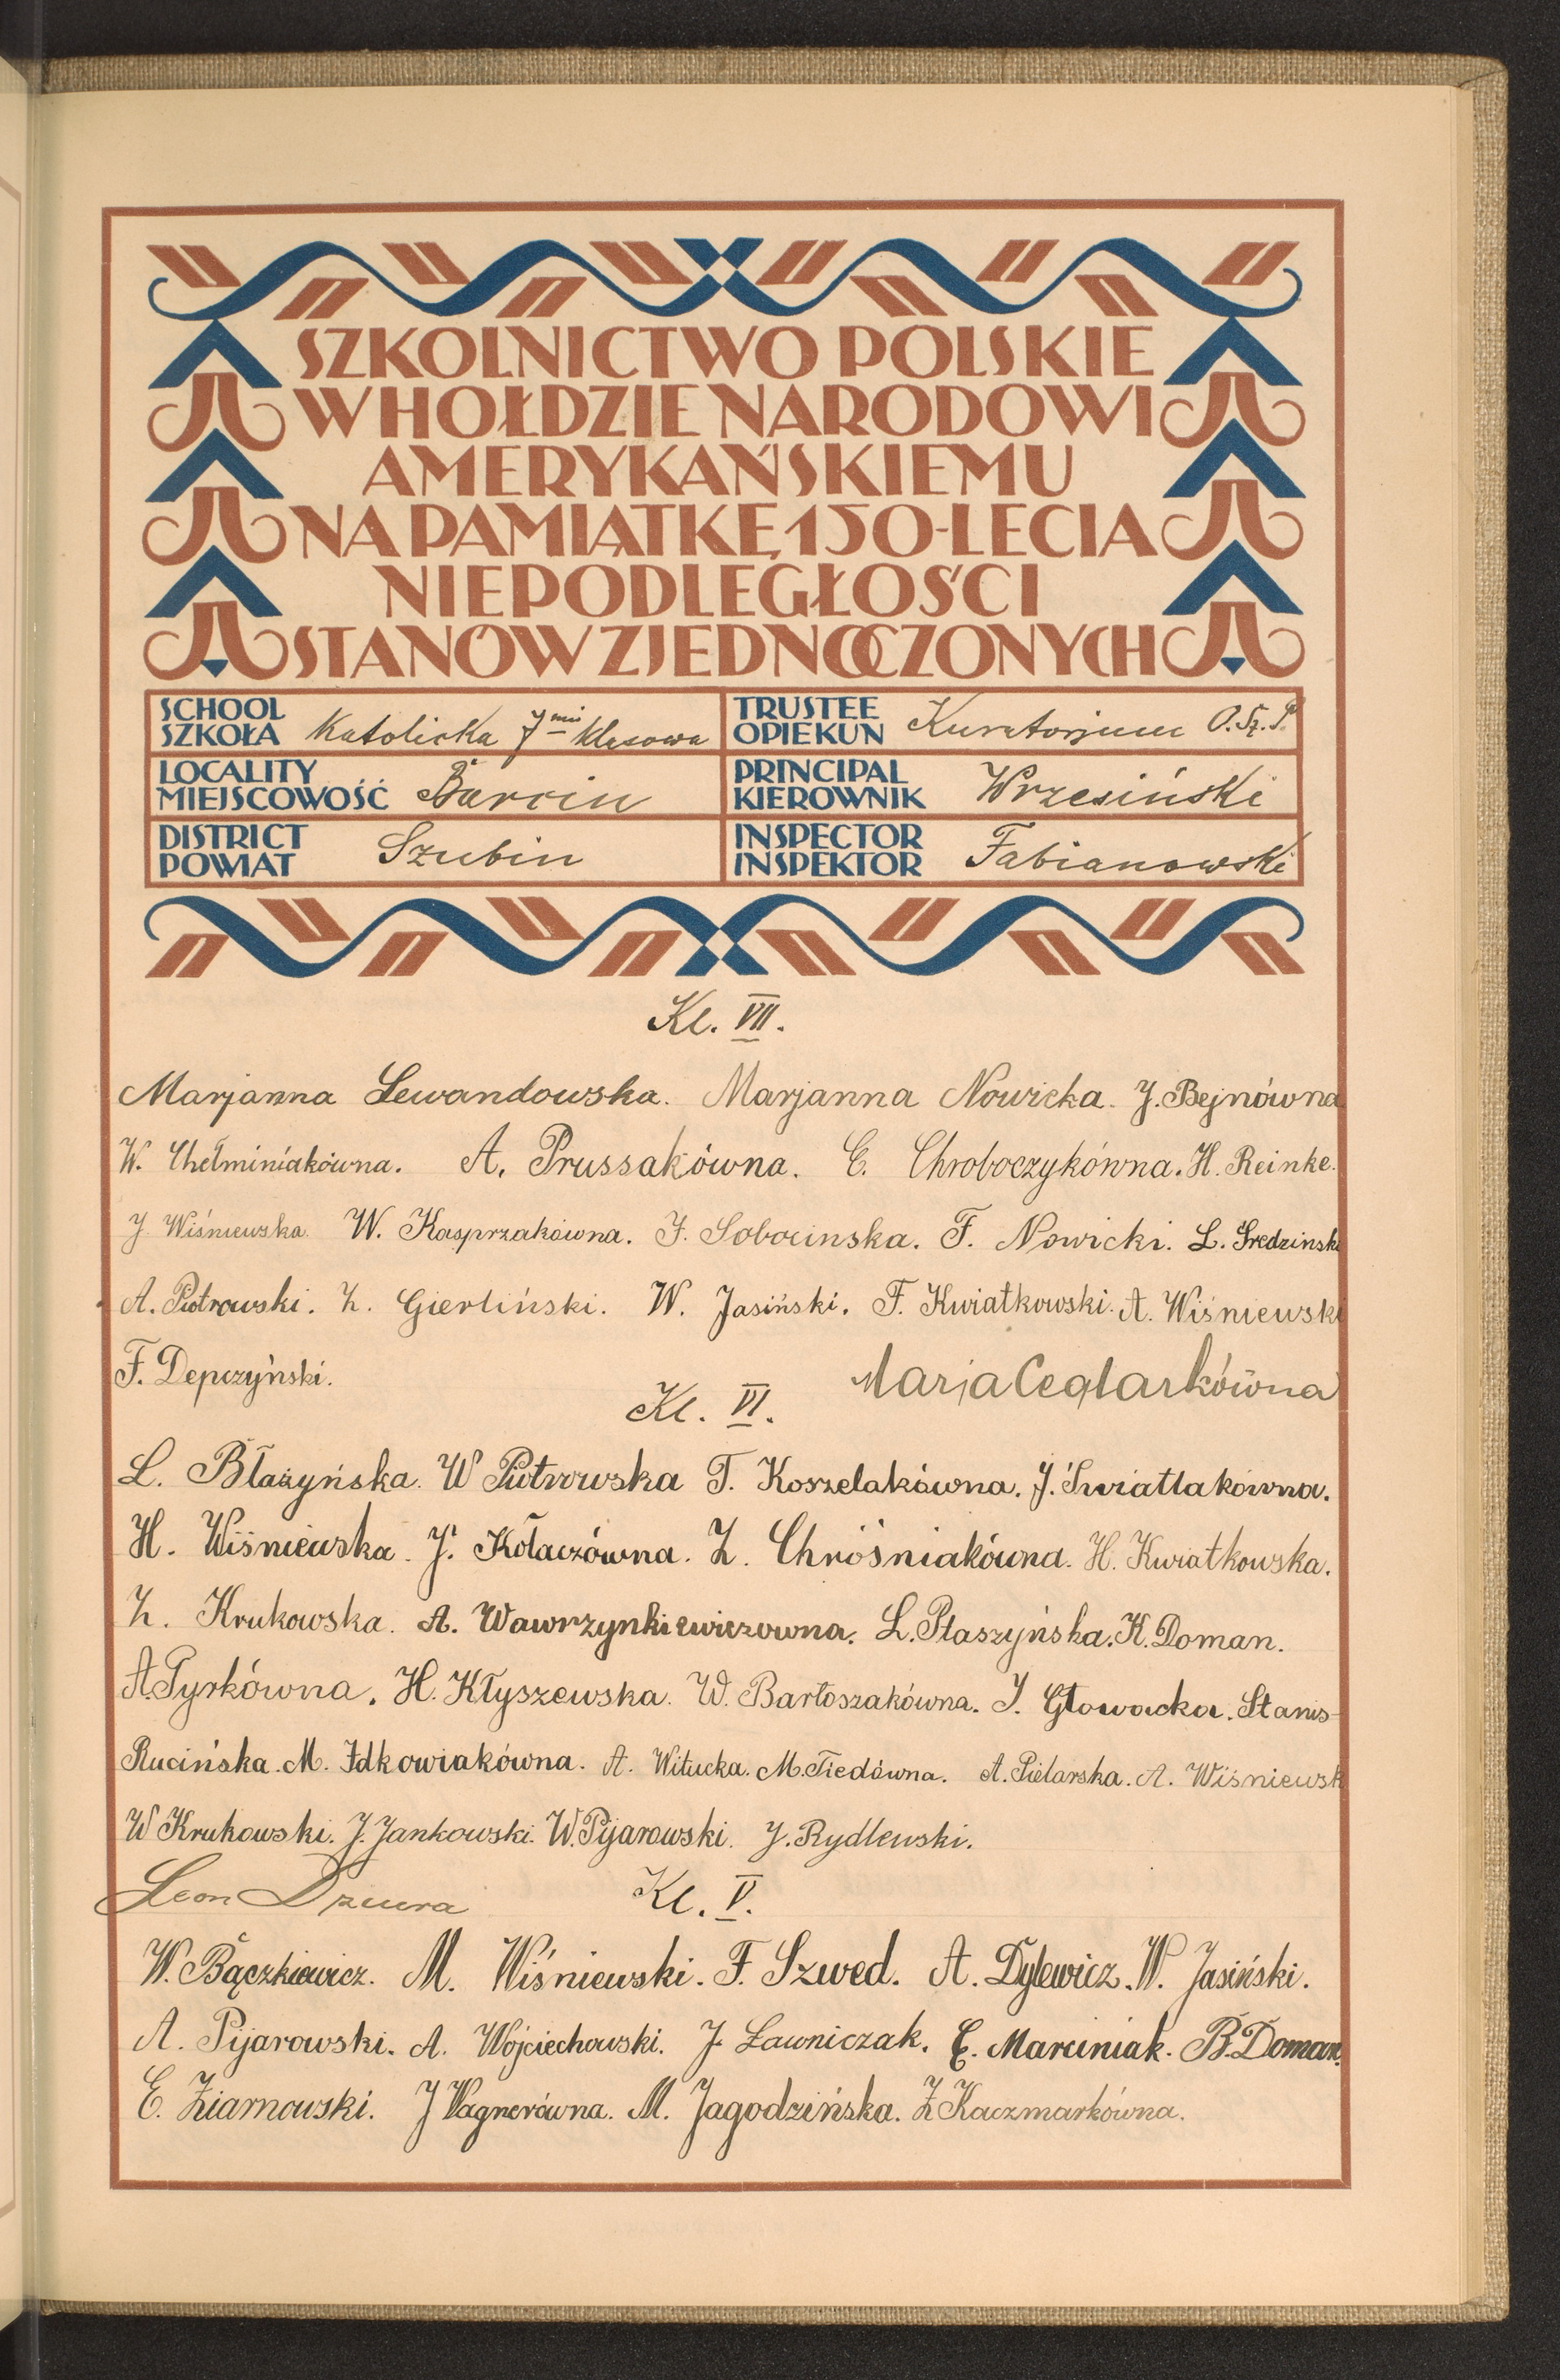 SZKOLNICTWO POLSKIE
W HOŁDZIE NARODOWI
AMERYKAŃSKIEMU
NA PAMIĄTKĘ 150-LECIA
NIEPODLEGŁOŚCI
STANÓW ZJEDNOCZONYCH
SCHOOL
SZKOŁA Katolicka 7mio klasowa
TRUSTEE
OPIEKUN Kuratorjum O.Sz.P.
LOCALITY
MIEJSCOWOŚĆ Barcin
PRINCIPAL
KIEROWNIK Wrzesiński
DISTRICT
POWIAT Szubin
INSPECTOR
INSPEKTOR Fabianowski
Kl. VII.
Marjanna Lewandowska. Marjanna Nowicka. J. Bejnówna
W. Chełminiakówna. A. Prussakówna. C. Chroboczykówna. H. Reinke.
J Wiśniewska. W. Kasprzakówna. J. Sobocinska. F. Nowicki. L. Sredzinski
A. Piotrowski. Z. Gierliński. W. Jasiński. F. Kwiatkowski. A. Wiśniewski
F. Depczyński. Marja Ceglarkówna
Kl. VI.
L. Błażyńska. W Piotrowska T. Koszelakówna. J. Swiatlakówna.
H. Wiśniewska. J. Kołaczówna. Z. Chróśniakówna. H. Kwiatkowska.
Z. Krukowska. A. Wawrzynkiewiczowna. L. Płaszyńska. K. Doman.
A. Pyrkówna. H. Kłyszewska. W. Bartoszakówna. J. Głowacka. Stanis-
Rucińska. M. Idkowiakówna. A. Witucka. M. Tiedówna. A. Pielarska. A. Wiśniewsk
W Krukowski. J. Jankowski. W. Pijarowski. J. Rydlewski.
Leon Dziura
Kl. V.
W. Bączkiewicz. M. Wiśniewski. F. Szwed. A. Dylewicz. W. Jasiński.
A. Pijarowski. A. Wojciechowski. J. Ławniczak. E. Marciniak. B. Doman.
E. Ziarnowski. J Wagnerówna. M. Jagodzińska. Z Kaczmarkówna.